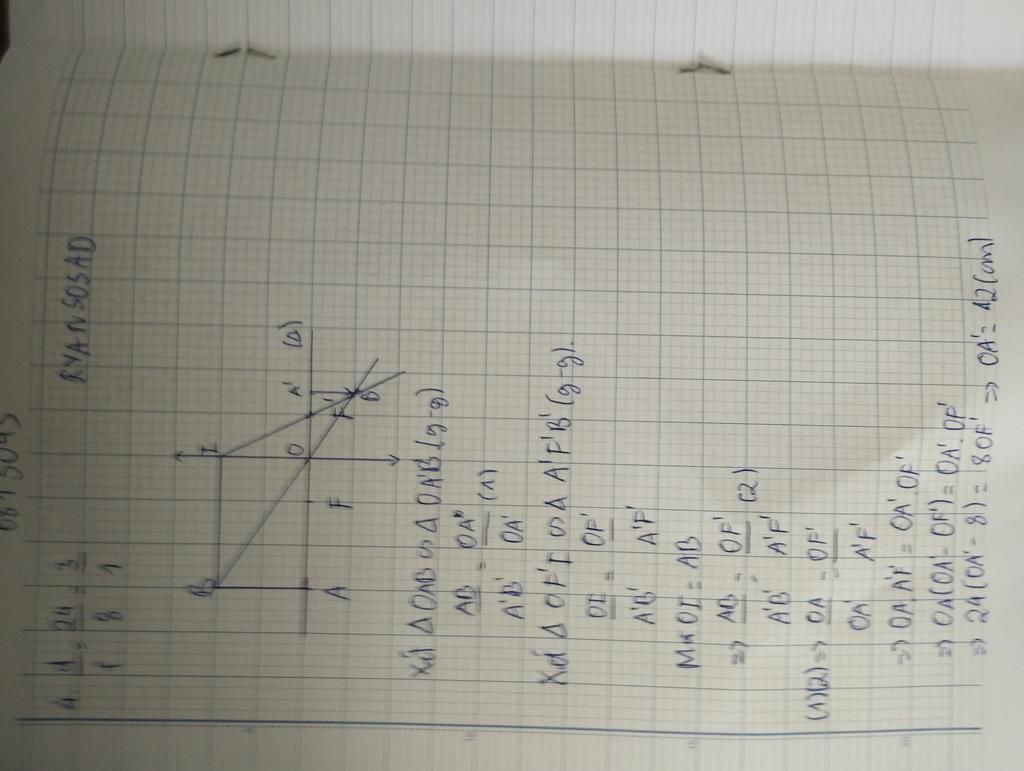 RYAN 50SAD
4. d/f = 24/8 = 3/1
B
I
(Δ)
A'
O
F'
B'
F
A
Xét Δ OAB ∽ Δ OA'B' (g-g)
AB/A'B' = OA/OA' (1)
Xét Δ OF'I ∽ Δ A'F'B' (g-g).
OI/A'B' = OF'/A'F'
Mà OI = AB
=> AB/A'B' = OF'/A'F' (2)
(1)(2) => OA/OA' = OF'/A'F'
=> OA.A'F' = OA'.OF'
=> OA(OA' - OF') = OA'.OF'
=> 24(OA' - 8) = 8OF' => OA' = 12(cm)